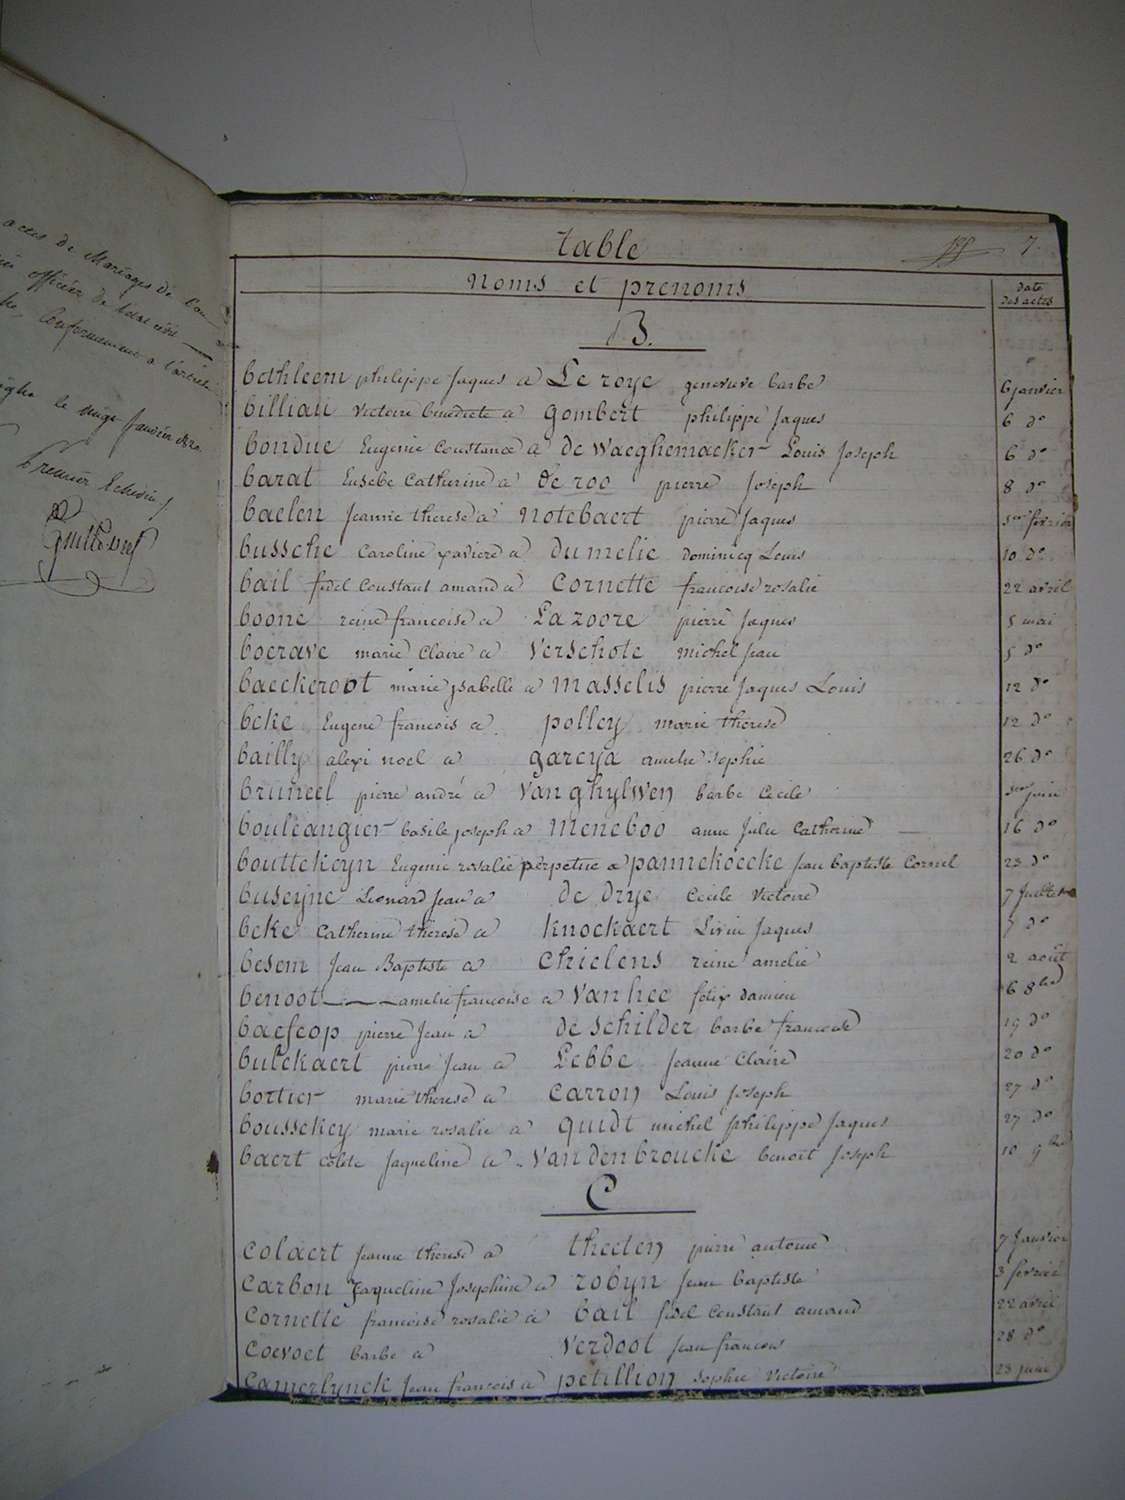 actes de Mariages de l'an
officier de l'état civil
conformement a l'article
le vingt Janvier
Premier Echevin
table 7.
noms et prenoms date des actes
B.
bethleem philippe Jaques a Le roye genevieve barbe 6 janvier
billiau victoire benedicte a gombert philippe Jaques 6 do
bondue Eugenie Constance a de waeghemacker Louis Joseph 6 do
barat Eusebe Catherine a de roo pierre Joseph 8 do
baelen jeanne therese a notebaert pierre Jaques 1er fevrier
bussche Caroline xaviere a dumelie dominicq Louis 10 do
bail fidel Constant amand a Cornette francoise rosalie 22 avril
boone reine francoise a Lazoore pierre jaques 5 mai
boerave marie Claire a verschote michel jean 5 do
baeckeroot marie ysabelle a masselis pierre Jaques Louis 12 do
beke Eugene francois a polley marie therese 12 do
bailly alexi noel a gareya amelie Sophie 26 do
bruneel pierre andré a vanghylwen barbe Cecile 1er juin
bouleangier basile joseph a meneboo anne Julie Catherine 16 do
bouttekeyn Eugenie rosalie perpetue a pannekoecke jean baptiste Cornel 23 do
buseyne Leonard jean a de drye Cecile victoire 7 Juillet
beke Catherine therese a knockaert Livin Jaques 7 do
besem Jean Baptiste a Chielens reine amelie 2 août
benoot amelie francoise a vanhee felix damien 6 8bre
baescop pierre Jean a de schilder barbe francoise 19 do
bulckaert pierre Jean a Lebbe jeanne Claire 20 do
bortier marie therese a Carron Louis Joseph 27 do
boussekey marie rosalie a quidt michel philippe Jaques 27 do
baert colete Jaqueline a vandenbroucke benoit Joseph 10 9bre
C
colaert jeanne therese a theeten pierre antoine 7 Janvier
carbon Jaqueline Josephine a robyn Jean baptiste 3 fevrier
cornette francoise rosalie a bail fidel Constant amand 22 avril
coevoet barbe a verdoot jean francois 28 do
camerlynck jean francois a petillion sophie victoire 23 juin